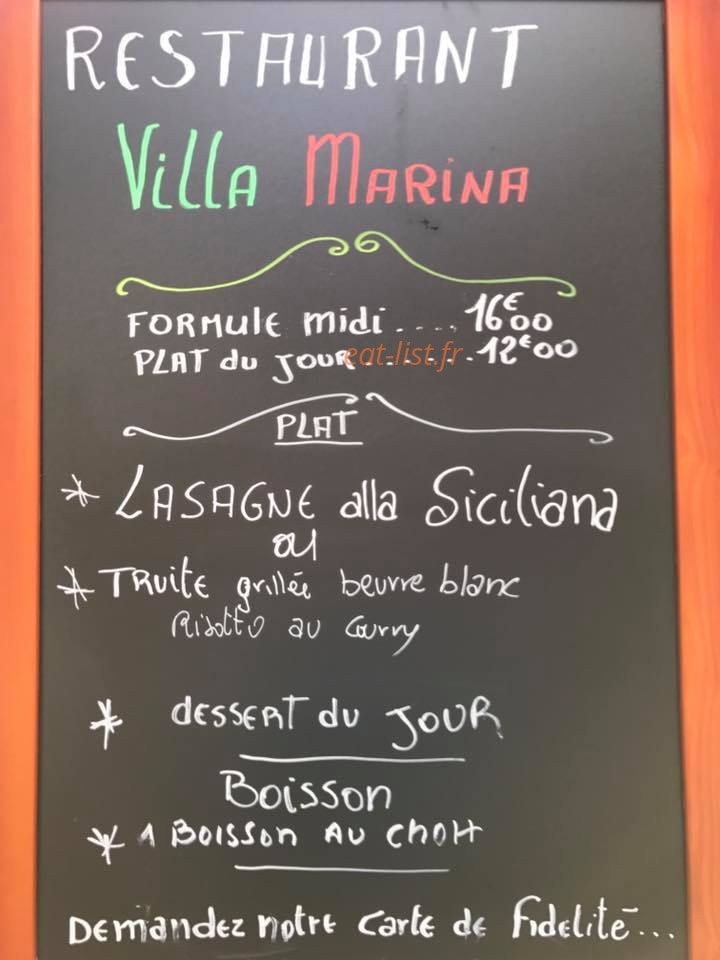 RESTAURANT
Villa MARiNA
FORMulE midi .... 16€00
PLAT du JOUR ....... 12€00
eat-list.fr
PLAT
* LASAGNE alla Siciliana
ou
* TRuitE grillée beurre blanc
Risotto au Curry
* dESSERT du JOUR
Boisson
* 1 BOISSON AU choix
DEmandez notre carte de fidelité...